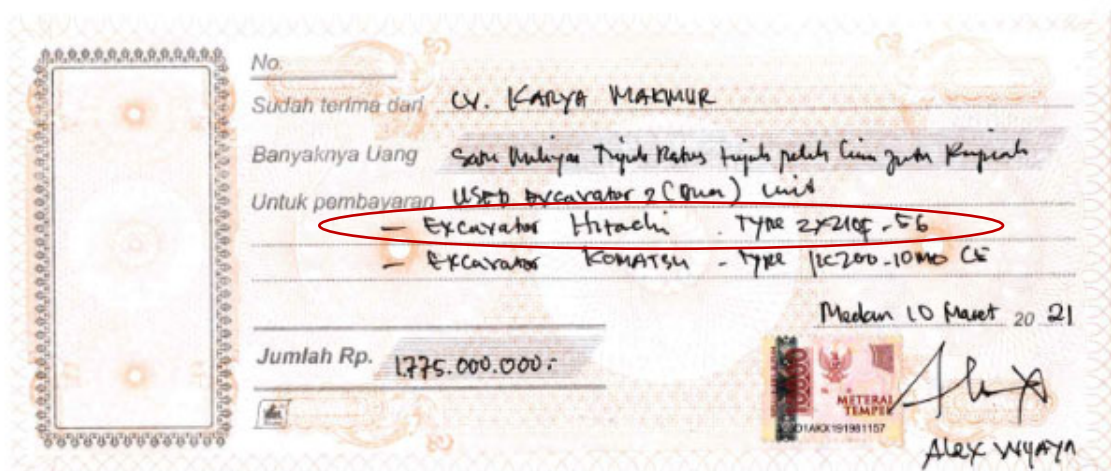 No.
Sudah terima dari CV. KARYA MAKMUR
Banyaknya Uang Satu Milyar Tujuh Ratus tujuh puluh lima juta Rupiah
Untuk pembayaran USED Excavator 2 (Dua) unit
- Excavator Hitachi - Type ZX210F-5G
- Excavator KOMATSU - Type PC200-10M0 CE
Medan 10 Maret 20 21
Jumlah Rp. 1.775.000.000:
10000
METERAI
TEMPEL
D1AKX191981157
Alex Wijaya